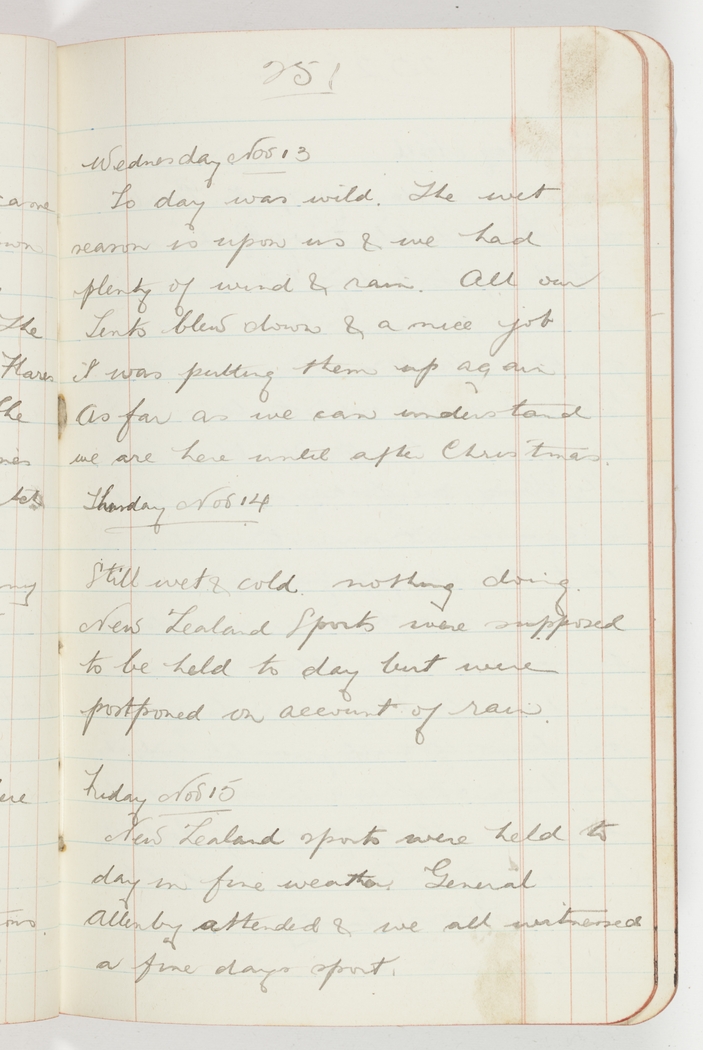 251
Wednesday Nov 13
To day was wild. The wet
season is upon us & we had
plenty of wind & rain. All our
Tents blew down & a nice job
I was putting them up again
As far as we can understand
we are here until after Christmas.
Thursday Nov 14
Still wet & cold. nothing doing.
New Zealand Sports were supposed
to be held to day but were
postponed on account of rain.
Friday Nov 15
New Zealand sports were held to
day in fine weather. General
Allenby attended & we all witnessed
a fine days sport.